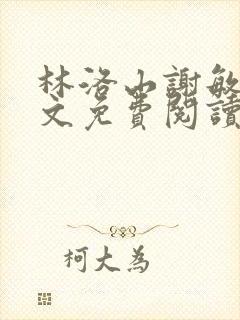 林洛山謝敏
文免費閱讀
柯大為